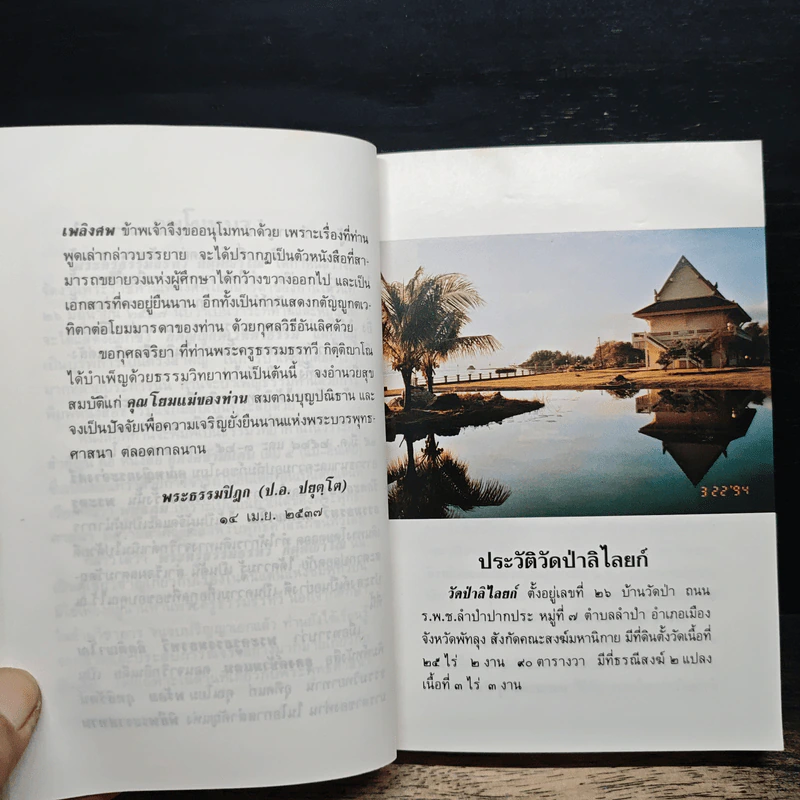 เพลิงศพ ข้าพเจ้าจึงขออนุโมทนาด้วย เพราะเรื่องที่ท่าน
พูดเล่ากล่าวบรรยาย จะได้ปรากฏเป็นตัวหนังสือที่สา-
มารถขยายวงแห่งผู้ศึกษาได้กว้างขวางออกไป และเป็น
เอกสารที่คงอยู่ยืนนาน อีกทั้งเป็นการแสดงกตัญญูกตเว-
ทิตาต่อโยมมารดาของท่าน ด้วยกุศลวิธีอันเลิศด้วย
ขอกุศลจริยา ที่ท่านพระครูธรรมธรทวี กิตฺติญาโณ
ได้บำเพ็ญด้วยธรรมวิทยาทานเป็นต้นนี้ จงอำนวยสุข
สมบัติแก่ คุณโยมแม่ของท่าน สมตามบุญปณิธาน และ
จงเป็นปัจจัยเพื่อความเจริญยั่งยืนนานแห่งพระบวรพุทธ-
ศาสนา ตลอดกาลนาน
พระธรรมปิฎก (ป.อ. ปยุตฺโต)
๑๔ เม.ย. ๒๕๓๗
3 22 '94
ประวัติวัดป่าลิไลยก์
วัดป่าลิไลยก์ ตั้งอยู่เลขที่ ๒๖ บ้านวัดป่า ถนน
ร.พ.ช.ลำปำปากประ หมู่ที่ ๗ ตำบลลำปำ อำเภอเมือง
จังหวัดพัทลุง สังกัดคณะสงฆ์มหานิกาย มีที่ดินตั้งวัดเนื้อที่
๒๕ ไร่ ๒ งาน ๙๐ ตารางวา มีที่ธรณีสงฆ์ ๒ แปลง
เนื้อที่ ๓ ไร่ ๓ งาน